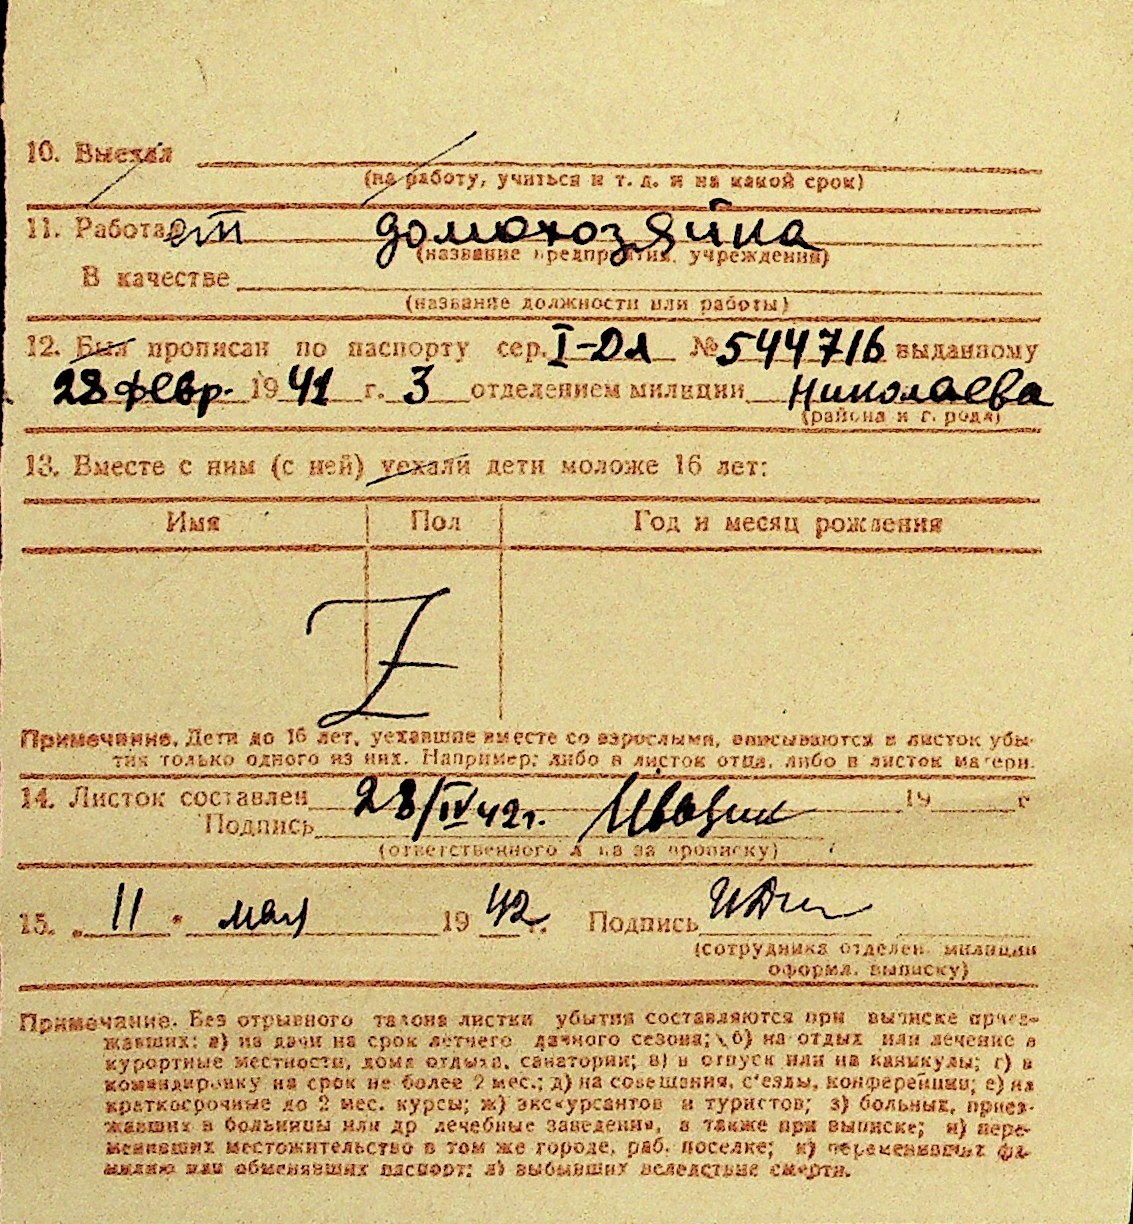 10. Выехал
(на работу, учиться и т. д. и на какой срок)
11. Работает домохозяйка
(название предприятия, учреждения)
В качестве
(название должности или работы)
12. Был прописан по паспорту сер. I-Дл № 544716 выданному
28 февр. 1941 г. 3 отделением милиции Николаева
(района и города)
13. Вместе с ним (с ней) уехали дети моложе 16 лет:
Имя Пол Год и месяц рождения
Z
Примечание. Дети до 16 лет, уехавшие вместе со взрослыми, вписываются в листок убы-
тия только одного из них. Например: либо в листок отца, либо в листок матери.
14. Листок составлен 28/IV 42 г. 19 г
Подпись
(ответственного л ца за прописку)
15. „11" мая 1942 г. Подпись
(сотрудника отделен. милиции
оформл. выписку)
Примечание. Без отрывного талона листки убытия составляются при выписке приез-
жавших: а) из дачи на срок летнего дачного сезона; б) на отдых или лечение в
курортные местности, дома отдыха, санатории; в) в отпуск или на каникулы; г) в
командировку на срок не более 2 мес.; д) на совещания, с'езды, конференции; е) на
краткосрочные до 2 мес. курсы; ж) экскурсантов и туристов; з) больных, приез-
жавших в больницы или др лечебные заведения, а также при выписке; и) пере-
менивших местожительство в том же городе, раб. поселке; к) переменивших фа-
милию или обменявших паспорт; л) выбывших вследствие смерти.